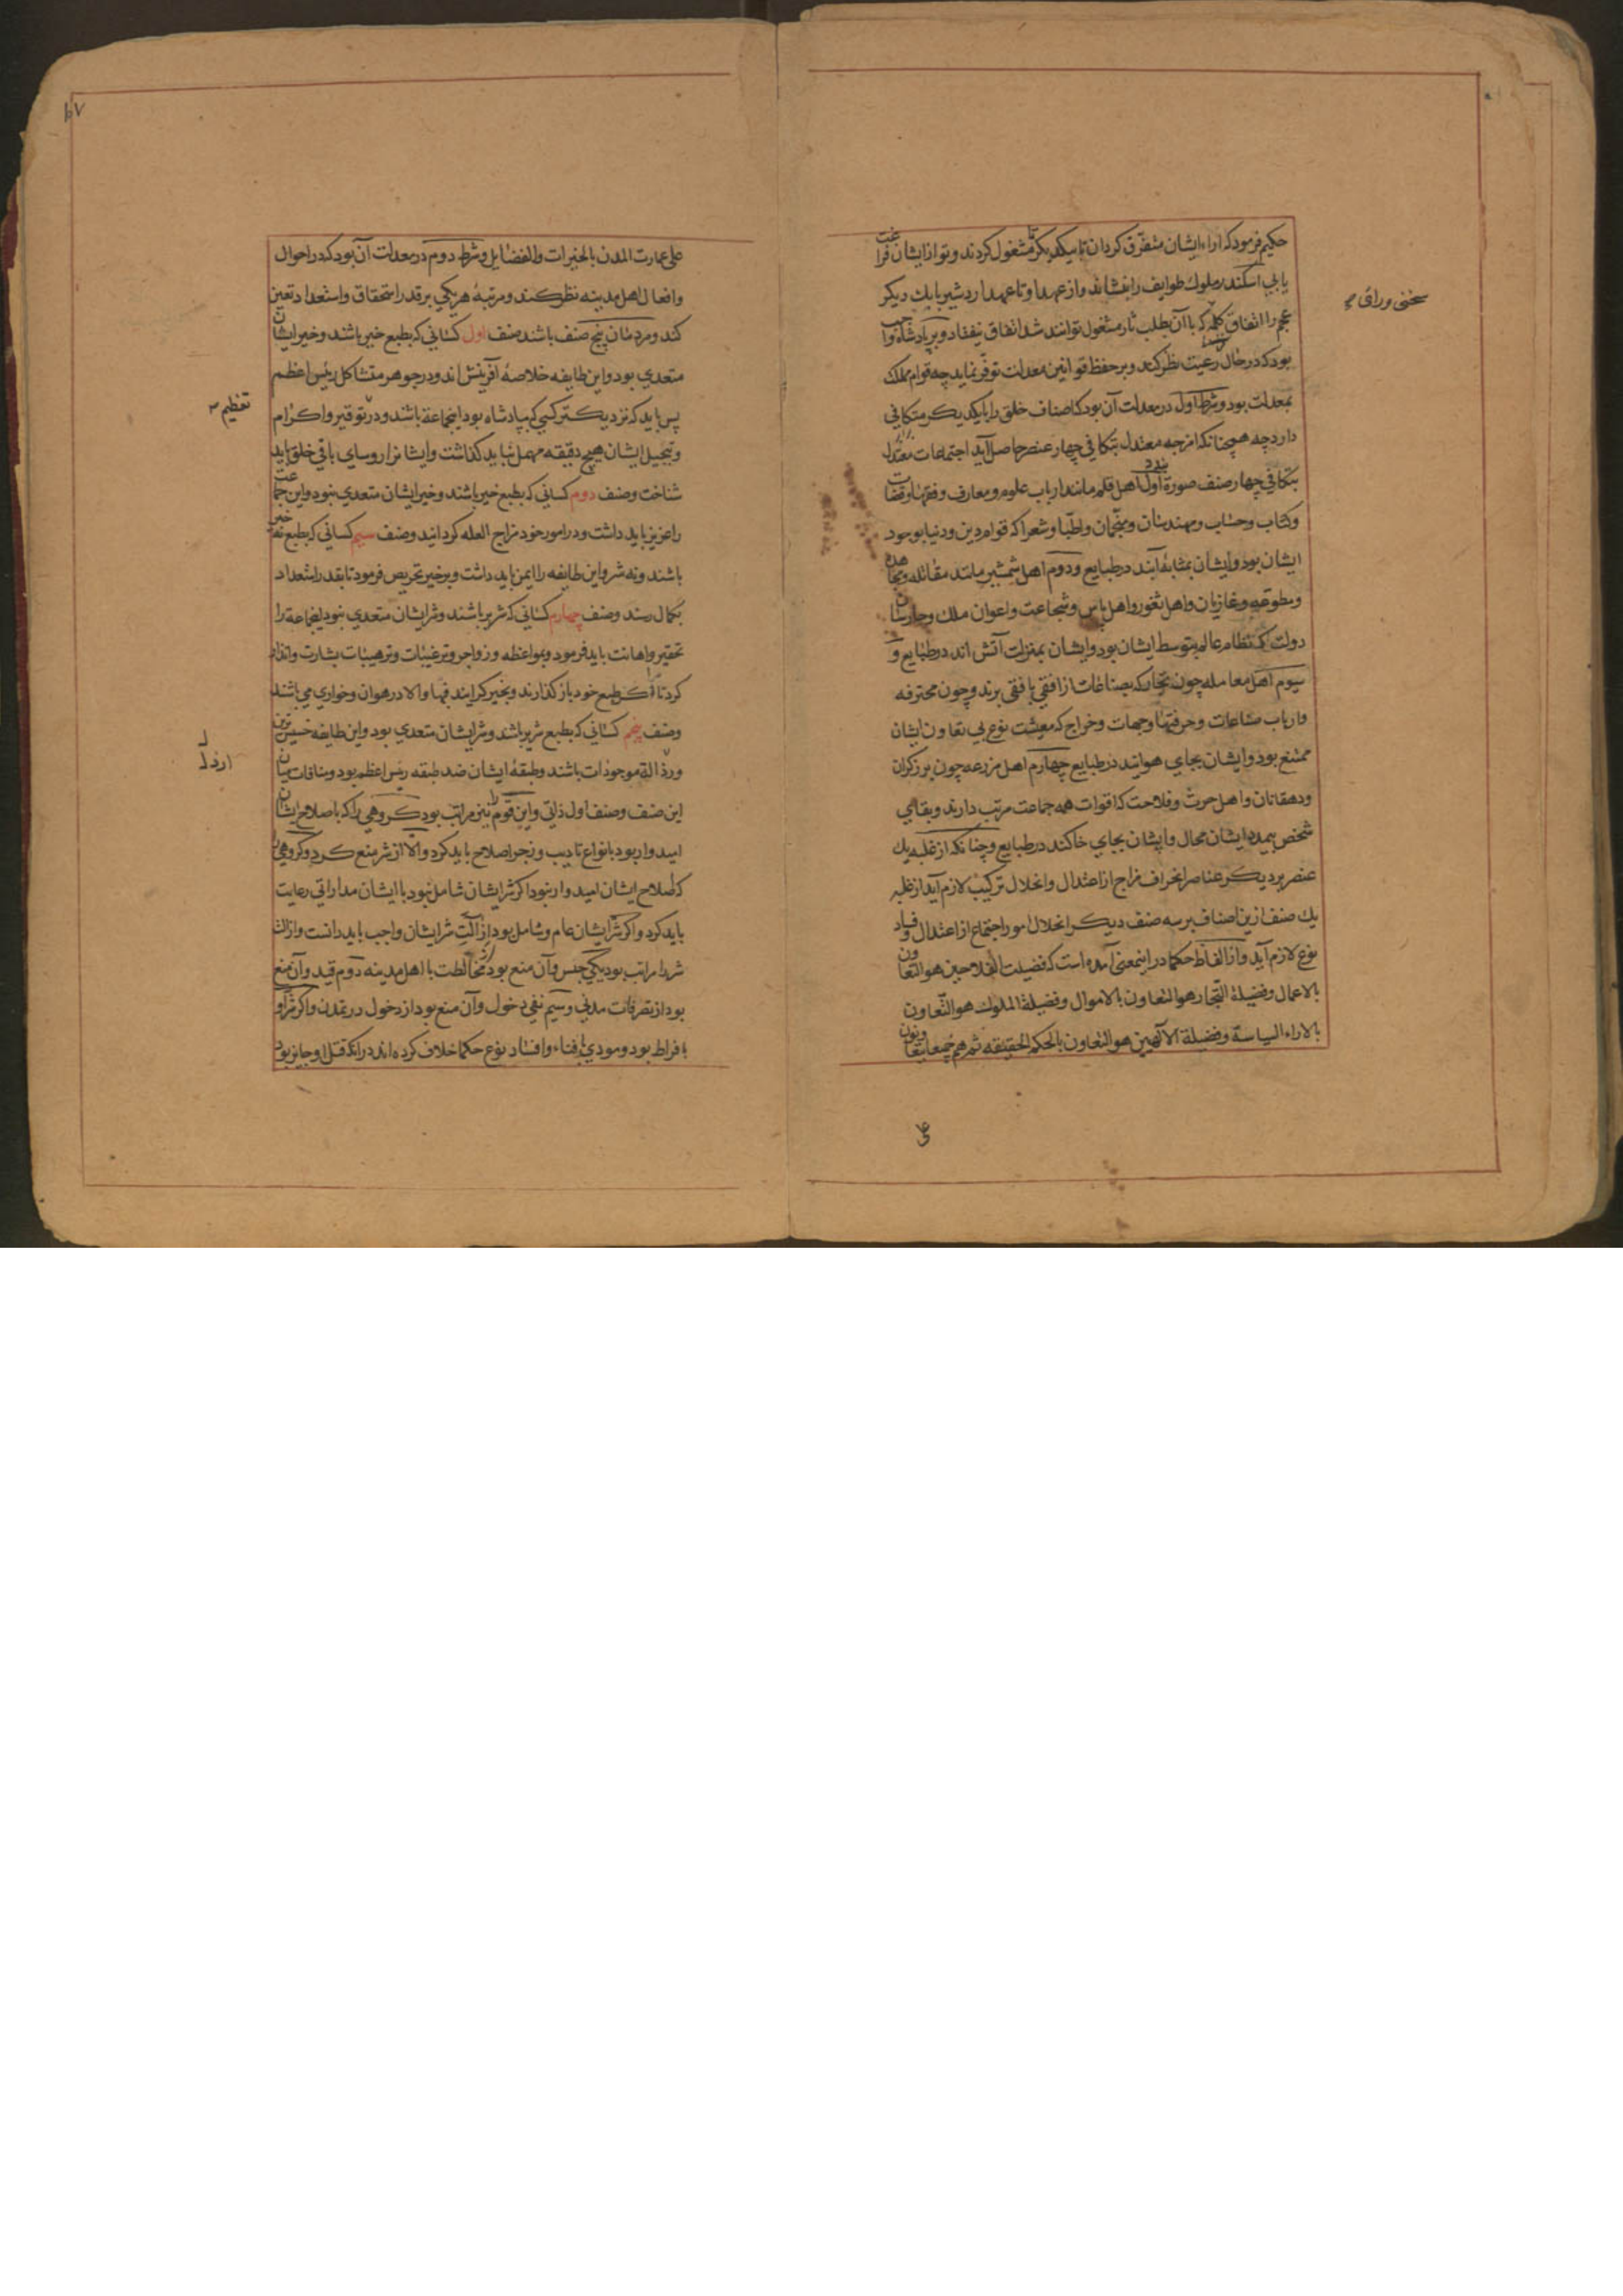 حکیم فرمود که اراء ایشان متفرق کردان تا بیکدیکر مشغول کردند و تو از ایشان فراغت
یابی اسکندر ملوک طوایف را بنشاند و از عهد او تا عهد اردشیر بابک دیکر
عجم را اتفاق کلمه که با آن بطلب ثار مشغول توانند شد اتفاق نیفتاد و بر پادشاه واجب
بود که در حال رعیت نظر کند و بر حفظ قوانین معدلت توفر نماید چه قوام مملکت
بمعدلت بود و شرط اول در معدلت آن بود که اصناف خلق را با یکدیکر متکافی
دارد چه همچنانکه امزجه معتدل بتکافی چهار عنصر حاصل آید اجتماعات معتدل
بتکافی چهار صنف صورة بندد اول اهل قلم مانند ارباب علوم و معارف و فقها و قضات
و کتاب و حساب و مهندسان و منجمان و اطبا و شعرا که قوام دین و دنیا بوجود
ایشان بود و ایشان بمثابۀ آبند در طبایع و دوم اهل شمشیر مانند مقاتله و مجاهده
و مطوعه و غازیان و اهل ثغور و اهل باس و شجاعت و اعوان ملک و حارسان
دولت که نظام عالم بتوسط ایشان بود و ایشان بمنزلت آتش اند در طبایع و
سیوم اهل معامله چون تجار که بضاعات از افقی بافقی برند و چون محترفه
و ارباب صناعات و حرفتها و جهات و خراج که معیشت نوع بی تعاون ایشان
ممتنع بود و ایشان بجای هوایند در طبایع چهارم اهل مزرعه چون برزکران
و دهقانان و اهل حرث و فلاحت که اقوات همه جماعت مرتب دارند و بقای
شخص بیمدد ایشان محال و ایشان بجای خاکند در طبایع و چنانکه از غلبه یک
عنصر بر دیکر عناصر انحراف مزاج از اعتدال و انحلال ترکیب لازم آید از غلبه
یک صنف ازین اصناف بر سه صنف دیکر انحلال امور اجتماع از اعتدال و فساد
نوع لازم آید و از الفاظ حکما در اینمعنی آمده است که فضیلت الفلاحین هو التعاون
بالاعمال و فضیلة التجار هو التعاون بالاموال و فضیلة الملوک هو التعاون
بالاراء السیاسة و فضیلة الآلهین هو التعاون بالحکم الحقیقه ثم هم جمیعا یتعاونون
سخنی ورای
علی عمارت المدن بالخیرات و الفضایل و شرط دوم در معدلت آن بود که در احوال
و افعال اهل مدینه نظر کند و مرتبه هر یکی بر قدر استحقاق و استعداد تعین
کند و مردمان پنج صنف باشند صنف اول کسانی که بطبع خیر باشند و خیر ایشان
متعدی بود و این طایفه خلاصۀ آفرینش اند و در جوهر مشاکل رئیس اعظم
پس باید که نزدیکتر کسی که بپادشاه بود اینجماعة باشند و در توقیر و اکرام
و تبجیل ایشان هیچ دقیقه مهمل نباید کذاشت و ایشانرا روسای باقی خلق باید
شناخت و صنف دوم کسانی که بطبع خیر باشند و خیر ایشان متعدی نبود و این جماعت
را عزیز باید داشت و در امور خود مزاح العله کردانید و صنف سیم کسانی که بطبع نه خیر
باشند و نه شر و این طایفه را ایمن باید داشت و بر خیر تحریص فرمود تا بقدر استعداد
بکمال رسند و صنف چهارم کسانی که شریر باشند و شر ایشان متعدی نبود اینجماعة را
تحقیر و اهانت باید فرمود و بمواعظه و زواجر و ترغیبات و ترهیبات بشارت و انذار
کرد تا اکر طبع خود باز کذارند و بخیر کرایند فبها و الا در هوان و خواری می باشند
و صنف پنجم کسانی که بطبع شریر باشند و شر ایشان متعدی بود و این طایفه خسیس ترین
و رذالة موجودات باشند و طبقۀ ایشان ضد طبقه رئیس اعظم بود و منافات میان
این صنف و صنف اول ذاتی و این قوم را نیز مراتب بود کروهی را که باصلاح ایشان
امید وار بود بانواع تادیب و زجر اصلاح باید کرد و الا از شر منع کرد و کروهی
که اصلاح ایشان امید وار نبود اکر شر ایشان شامل نبود با ایشان مداراتی رعایت
باید کرد و اکر شر ایشان عام و شامل بود ازالت شر ایشان واجب باید دانست و ازالت
شر را مراتب بود یکی حبس و آن منع بود از مخالطت با اهل مدینه دوم قید و آن منع
بود از تصرفات مدنی و سیم نفی دخول و آن منع بود از دخول در تمدن و اکر شر او
بافراط بود و مودی بافناء و افساد نوع حکما خلاف کرده اند در انکه قتل او جایز بود
تعظیم
ارذل